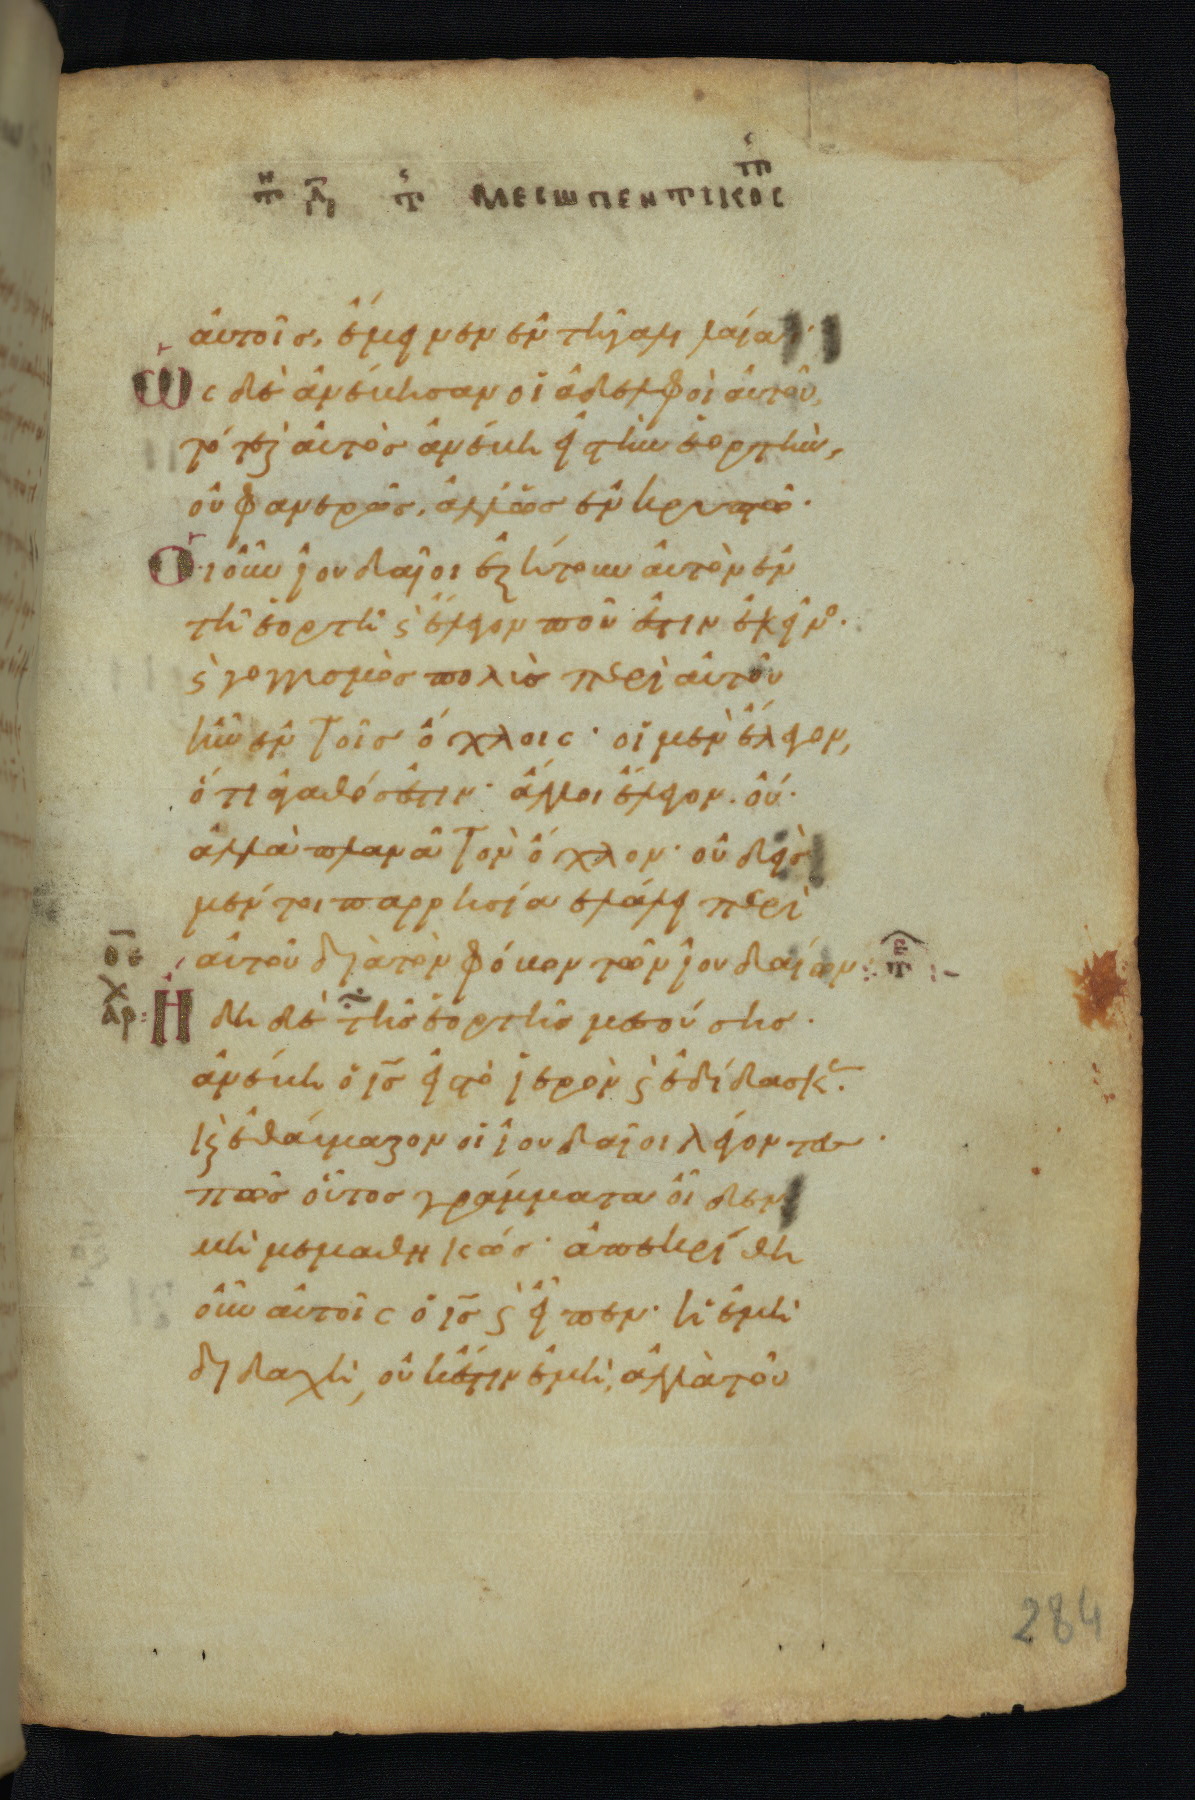 ΜΕCΩΠΕΝΤΙΚΟC
αὐτοῖς, ἔμεινεν ἐν τῆ γαλιλαία·
Ὡς δὲ ἀνέβησαν οἱ ἀδελφοὶ αὐτοῦ,
τότε καὶ αὐτὸς ἀνέβη εἰς τὴν ἑορτὴν,
οὐ φανερῶς, ἀλλ' ὡς ἐν κρυπτῶ·
Οἱ οὖν ἰουδαῖοι ἐζήτουν αὐτὸν ἐν
τῆ ἑορτῆ καὶ ἔλεγον ποῦ ἐστιν ἐκεῖνος·
καὶ γογγυσμὸς πολὺς περὶ αὐτοῦ
ἦν ἐν τοῖς ὄχλοις· οἱ μὲν ἔλεγον,
ὅτι ἀγαθός ἐστιν· ἄλλοι ἔλεγον· οὔ·
ἀλλὰ πλανᾶ τὸν ὄχλον· οὐδεὶς
μέντοι παρρησία ἐλάλει περὶ
αὐτοῦ διὰ τὸν φόβον τῶν ἰουδαίων
Ἤδη δὲ τῆς ἑορτῆς μεσούσης·
ἀνέβη ὁ ις εἰς τὸ ἱερὸν καὶ ἐδίδασκε·
καὶ ἐθαύμαζον οἱ ἰουδαῖοι λέγοντες·
πῶς οὗτος γράμματα οἶδεν
μὴ μεμαθηκώς· ἀπεκρίθη
οὖν αὐτοῖς ὁ ις καὶ εἶπεν· ἡ ἐμὴ
διδαχὴ, οὐκ ἔστιν ἐμὴ, ἀλλὰ τοῦ
284